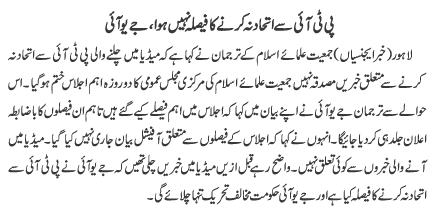 پی ٹی آئی سے اتحاد نہ کرنے کا فیصلہ نہیں ہوا، جے یو آئی
لاہور (خبر ایجنسیاں) جمعیت علمائے اسلام کے ترجمان نے کہا ہے کہ میڈیا میں چلنے والی پی ٹی آئی سے اتحاد نہ
کرنے سے متعلق خبریں مصدقہ نہیں جمعیت علمائے اسلام کی مرکزی مجلس عمومی کا دو روزہ اہم اجلاس ختم ہو گیا۔ اس
حوالے سے ترجمان جے یو آئی نے اپنے بیان میں کہا کہ اجلاس میں اہم فیصلے کیے گئے ہیں تاہم ان فیصلوں کا باضابطہ
اعلان جلد ہی کر دیا جائیگا۔ انہوں نے کہا کہ اجلاس کے فیصلوں سے متعلق آفیشل بیان جاری نہیں کیا گیا۔ میڈیا میں
آنے والی خبروں سے کوئی تعلق نہیں۔ واضح رہے قبل ازیں میڈیا میں خبریں چلی تھیں کہ جے یو آئی نے پی ٹی آئی سے
اتحاد نہ کرنے کا فیصلہ کیا ہے اور جے یو آئی حکومت مخالف تحریک تنہا چلائے گی۔